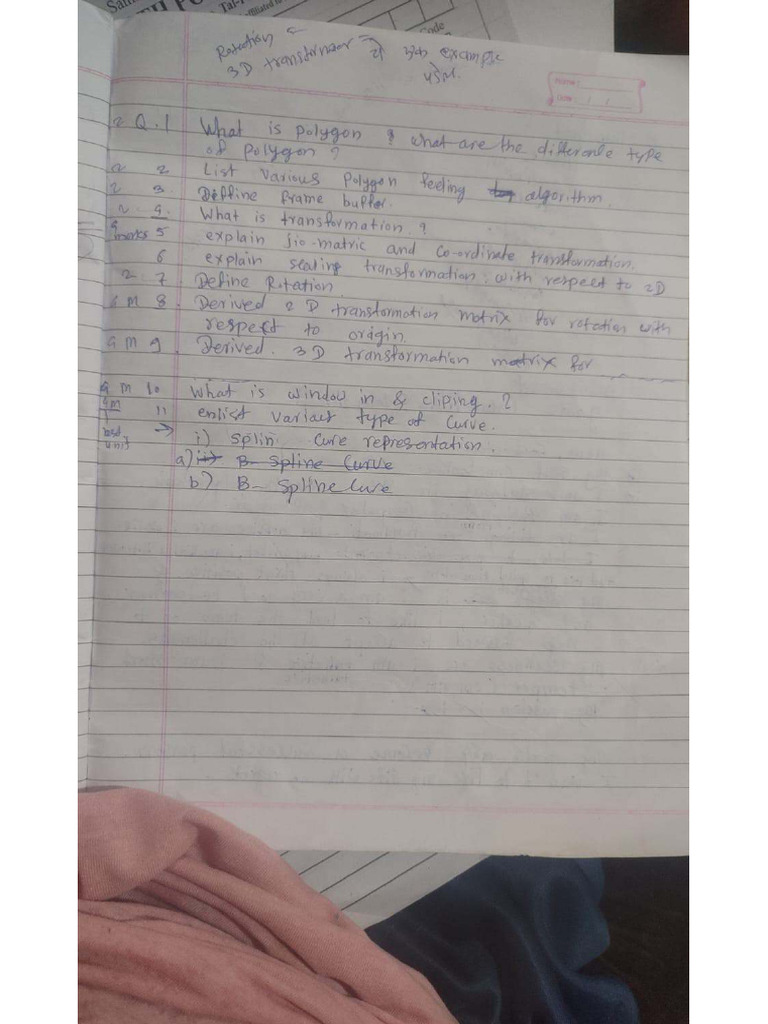 Code
Rotation =
3D transformation
example
Name:
Date: / /
2 Q.1 What is polygon ? what are the differente type
of polygon ?
2 2 List various polygon feeling algorithm.
2 3. Deffine frame buffer.
2 4. What is transformation. ?
4 marks 5 explain jio-matric and co-ordinate transformation.
6 explain scaling transformation: with respect to 2D
2 7 Define Rotation
4 M 8. Derived 2 D transformation matrix for rotation with
respect to origin.
4 M 9. Derived. 3 D transformation matrix for
4 M 10 What is window in & cliping. ?
4M 11 enlist variact type of Curve.
last unit → i) splin cure representation.
a) ii) B- Spline Curve
b) B- Spline Cure